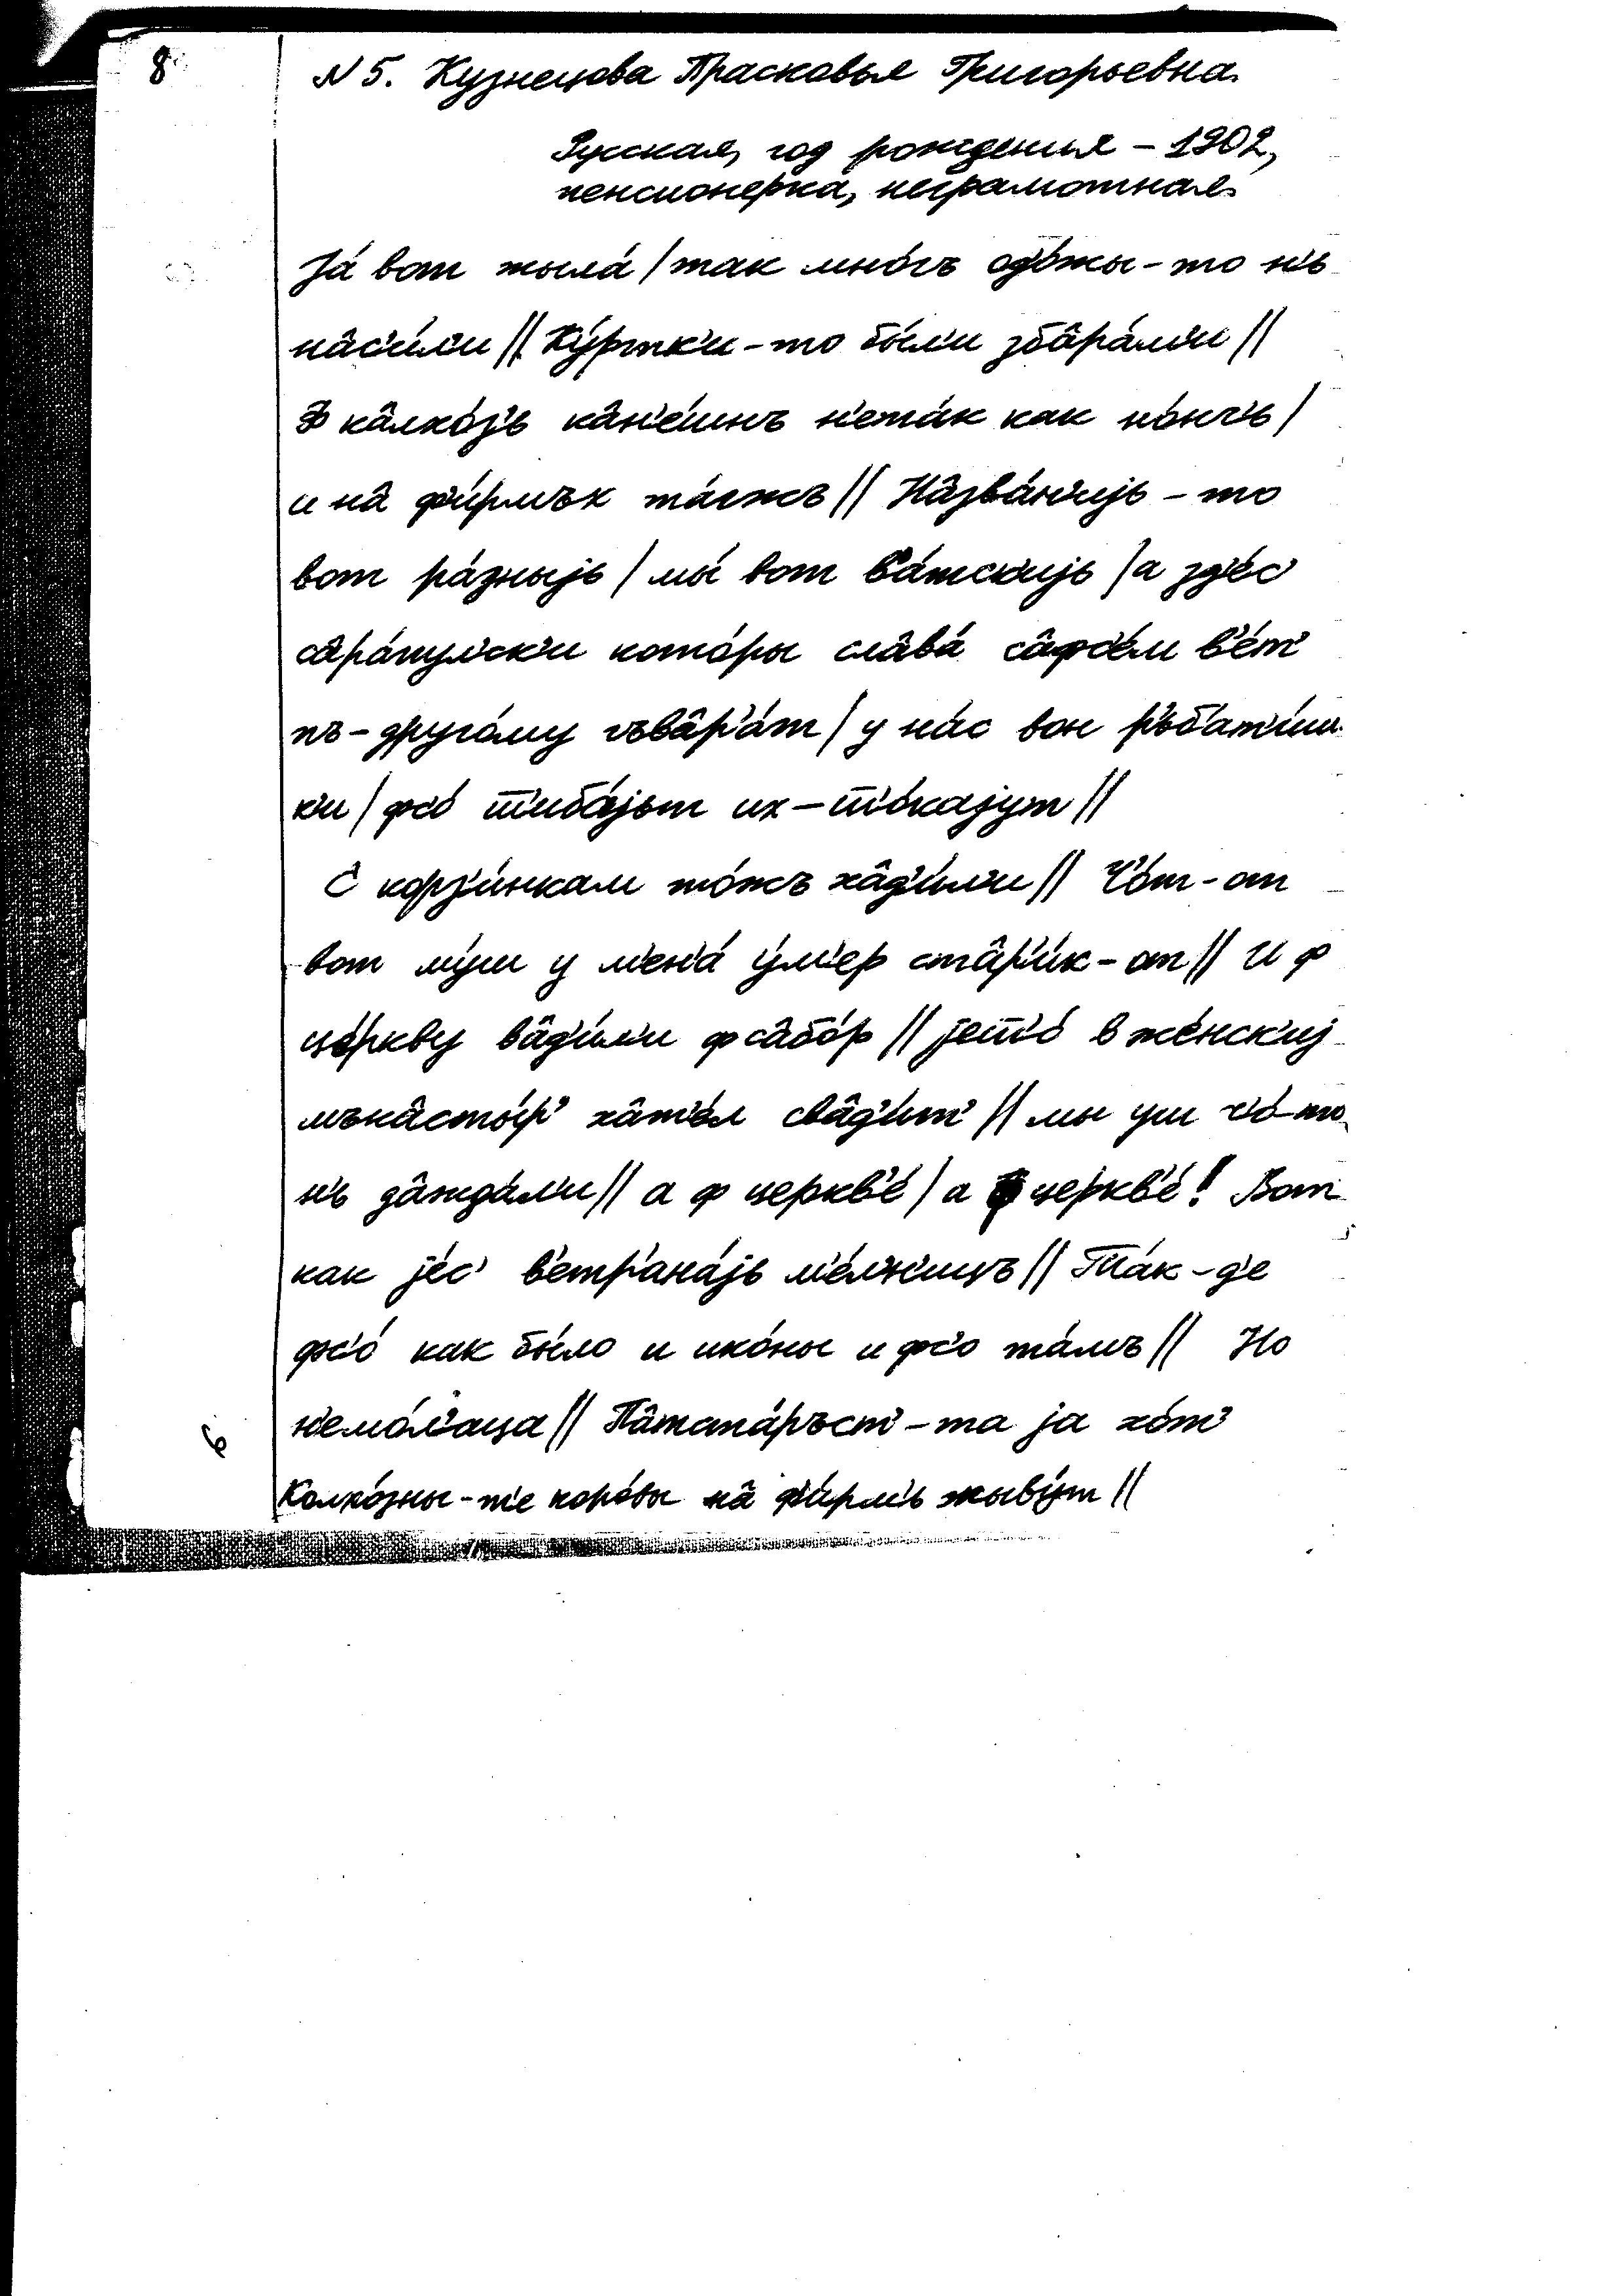 8
N 5. Кузнецова Прасковья Григорьевна.
Русская, год рождения – 1902,
пенсионерка, неграмотная.
Já вот жыла́ / так мно́гъ одо́жы-то н'ь
на̂с'и́л'и // Ку́ртк'и-то бы́л'и зба̂ра́м'и //
Ф ка̂лхо́з'ь ка̂н'е́шнъ н'ета́к как но́нч'ь /
и на̂ ф'и́рмъх та́гжъ // На̂зва́н'иjь-то
вот ра́зныjь / мы́ вот в'а́тск'иjь / а зд'е́с'
са̂ра́пул'ск'и кото́ры сла̂ва́ са̂фс'е́м в'е́т'
пъ-друго́му гъва̂р'а́т / у на́с вон р'ьб'ат'и́ш-
к'и / фс'о́ ш̅'иба́jьт их – ш̅'о́каjут //
С корз'и́нкам то́жъ ха̂д'и́л'и // Ч'о́т-от
вот му́ш у м'ен'а́ у́м'ер ста̂р'и́к-от // И ф
це́ркву ва̂д'и́л'и ф са̂бо́р // jеш̅'о́ в же́нск'иj
мъна̂сты́р' ха̂т'е́л сва̂д'и́т' // мы уш ч'о́-то
н'ь да̂жда́л'и // а ф церкв'е́ / а ф церкв'е́! Вот
как jе́с' в'етр'ана́jь м'е́л'н'ицъ // Та́к-д'е
фс'о́ как бы́ло и ико́ны и фс'о та́мъ // Но
н'емо́л'аца // Па̂тста́ръст'-та jа хо́т'
Колхо́зны-т'е коро́вы на̂ ф'и́рм'ь жыву́т //
6